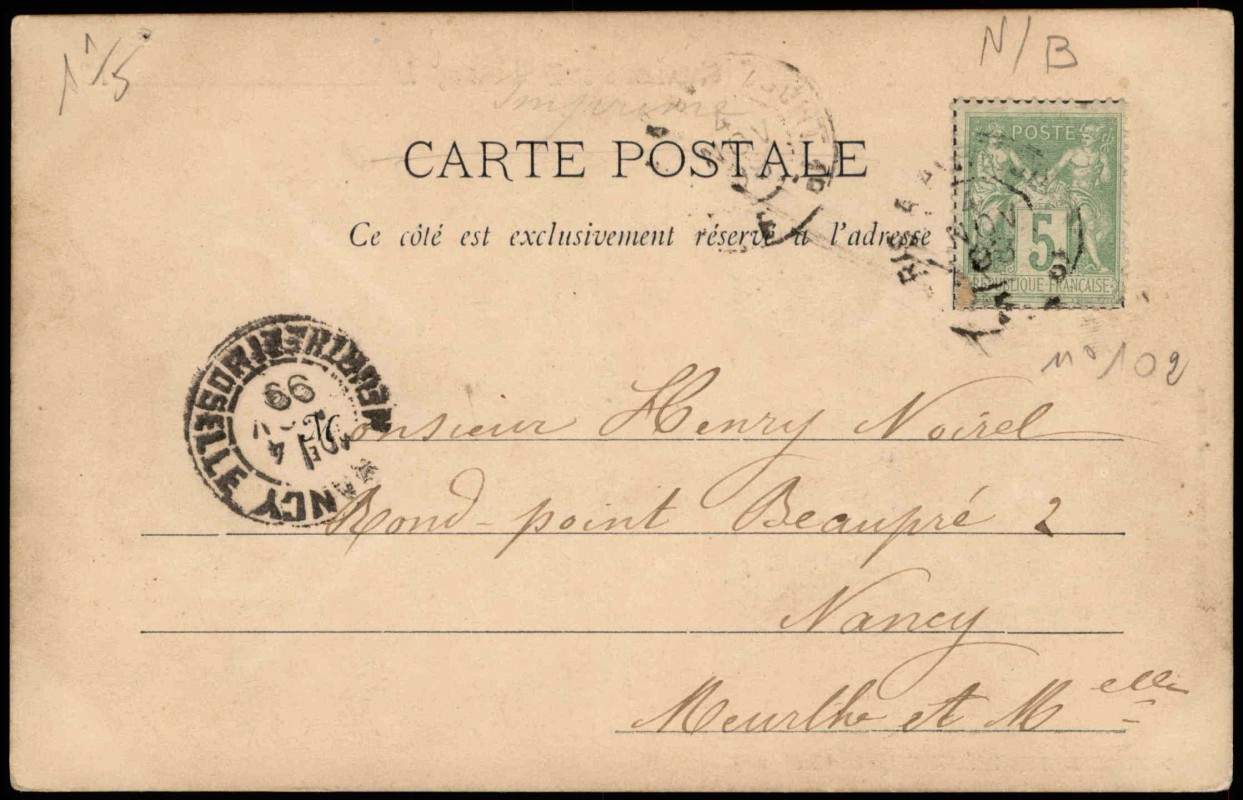 N/B
Imprimé
CARTE POSTALE
Ce côté est exclusivement réservé à l'adresse
POSTE
5
REPUBLIQUE FRANÇAISE
n° 102
NANCY
99
Monsieur Henry Noirel
Rond-point Beaupré 2
Nancy
Meurthe et Melle